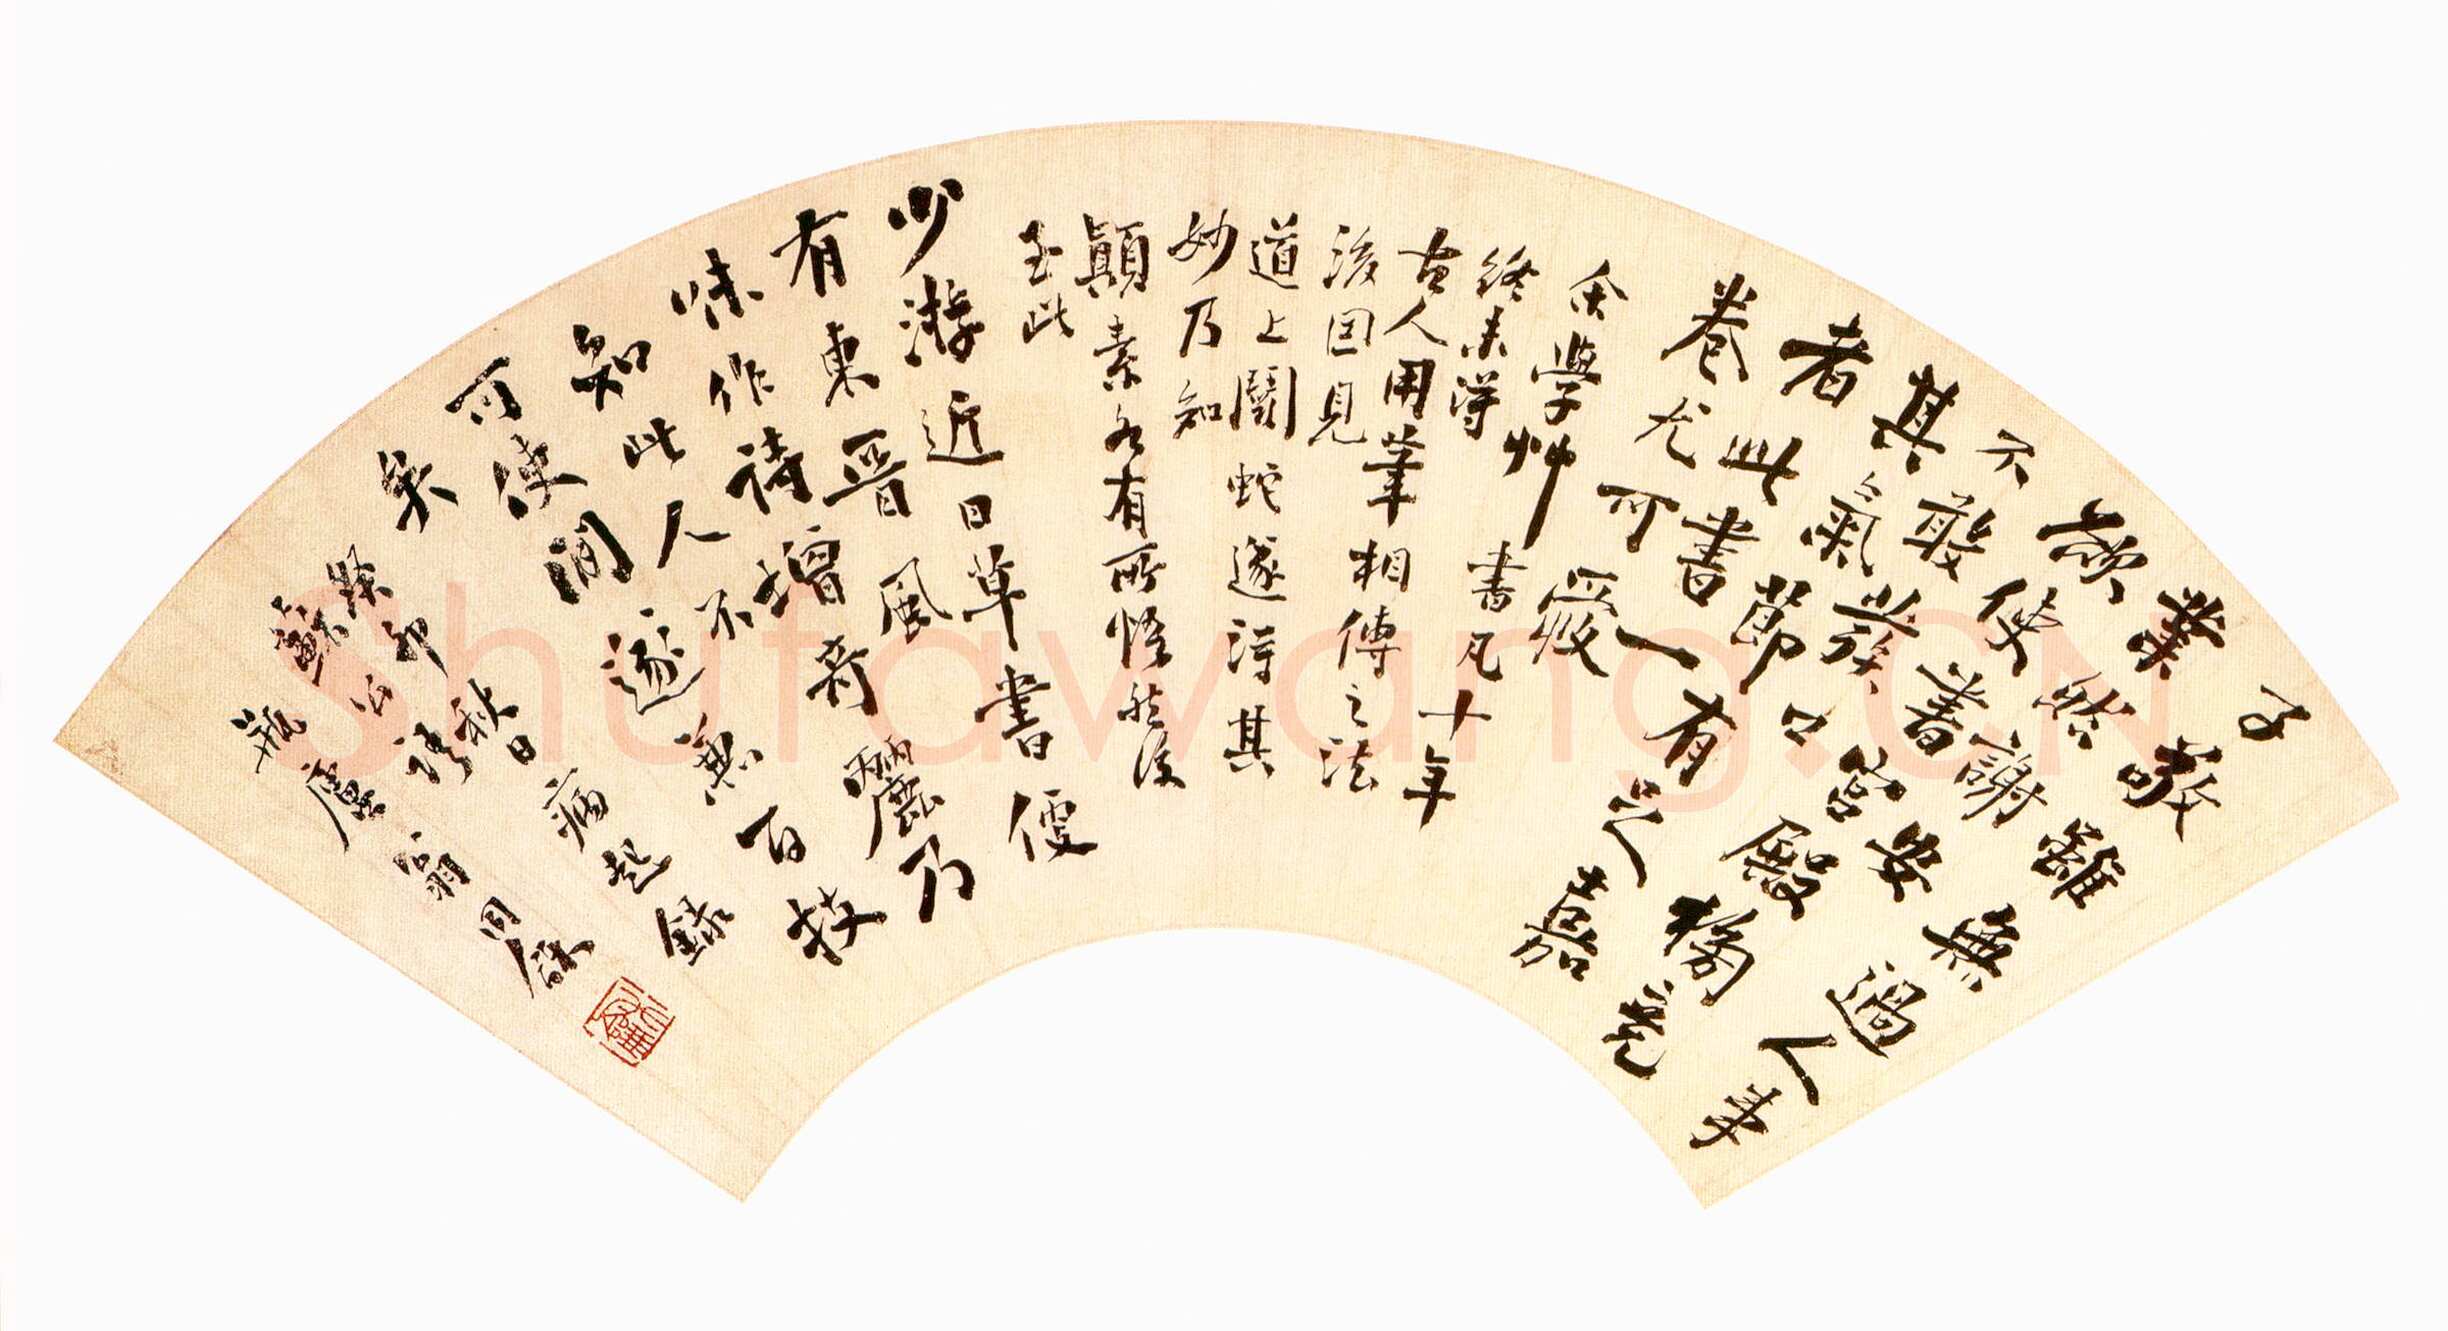 子敬雖無過人事
業然謝安
欲使書宮殿榜竟
不敢發口
其氣節有足嘉
者此書一
卷尤可愛
余學艸書凡十年
終未得
古人用筆相傳之法
後因見
道上鬭蛇遂得其
妙乃知
顛素各有所悟然後
至此
少游近日草書便
有東晉風
味作詩增奇麗乃
知此人不
可使閒遂兼百技
矣
癸卯秋日病起錄
蘇公語
瓶廬翁同龢
Shufawang.CN